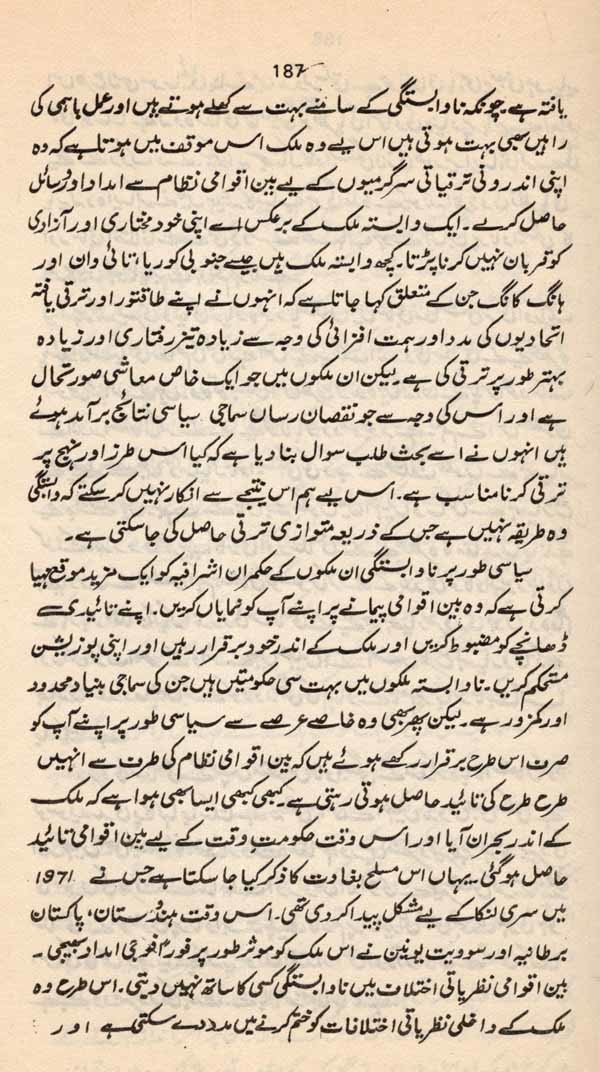 187
یافتہ ہے۔ چونکہ ناوابستگی کے سامنے بہت سے کھلے ہوتے ہیں اور عمل باہمی کی
راہیں بھی بہت ہوتی ہیں اس لیے وہ ملک اس موقف میں ہوتا ہے کہ وہ
اپنی اندرونی ترقیاتی سرگرمیوں کے لیے بین اقوامی نظام سے امداد اور وسائل
حاصل کرے۔ ایک وابستہ ملک کے برعکس اسے اپنی خود مختاری اور آزادی
کو قربان نہیں کرنا پڑتا۔ کچھ وابستہ ملک ہیں جیسے جنوبی کوریا، تائی وان اور
ہانگ کانگ جن کے متعلق کہا جاتا ہے کہ انہوں نے اپنے طاقتور اور ترقی یافتہ
اتحادیوں کی مدد اور ہمت افزائی کی وجہ سے زیادہ تیز رفتاری اور زیادہ
بہتر طور پر ترقی کی ہے۔ لیکن ان ملکوں میں جو ایک خاص معاشی صورتحال
ہے اور اس کی وجہ سے جو نقصان رساں سماجی سیاسی نتائج برآمد ہوئے
ہیں انہوں نے اسے بحث طلب سوال بنا دیا ہے کہ کیا اس طرز اور نہج پر
ترقی کرنا مناسب ہے۔ اس لیے ہم اس نتیجے سے انکار نہیں کر سکتے کہ وابستگی
وہ طریقہ نہیں ہے جس کے ذریعہ متوازی ترقی حاصل کی جا سکتی ہے۔
سیاسی طور پر ناوابستگی ان ملکوں کے حکمران اشرافیہ کو ایک مزید موقع مہیا
کرتی ہے کہ وہ بین اقوامی پیمانے پر اپنے آپ کو نمایاں کریں۔ اپنے تائیدی سے
ڈھانچے کو مضبوط کریں اور ملک کے اندر خود برقرار رہیں اور اپنی پوزیشن
مستحکم کریں۔ ناوابستہ ملکوں میں بہت سی حکومتیں ہیں جن کی سماجی بنیاد محدود
اور کمزور ہے۔ لیکن پھر بھی وہ خاصے عرصے سے سیاسی طور پر اپنے آپ کو
صرف اس طرح برقرار رکھے ہوئے ہیں کہ بین اقوامی نظام کی طرف سے انہیں
طرح طرح کی تائید حاصل ہوتی رہتی ہے۔ کبھی کبھی ایسا بھی ہوا ہے کہ ملک
کے اندر بحران آیا اور اس وقت حکومتِ وقت کے لیے بین اقوامی تائید
حاصل ہوگئی۔ یہاں اس مسلح بغاوت کا ذکر کیا جا سکتا ہے جس نے 1971
میں سری لنکا کے لیے مشکل پیدا کر دی تھی۔ اس وقت ہندوستان، پاکستان
برطانیہ اور سوویت یونین نے اس ملک کو موثر طور پر فوراً فوجی امداد بھیجی۔
بین اقوامی نظریاتی اختلاف میں ناوابستگی کسی کا ساتھ نہیں دیتی۔ اس طرح وہ
ملک کے داخلی نظریاتی اختلافات کو ختم کرنے میں مدد دے سکتی ہے اور